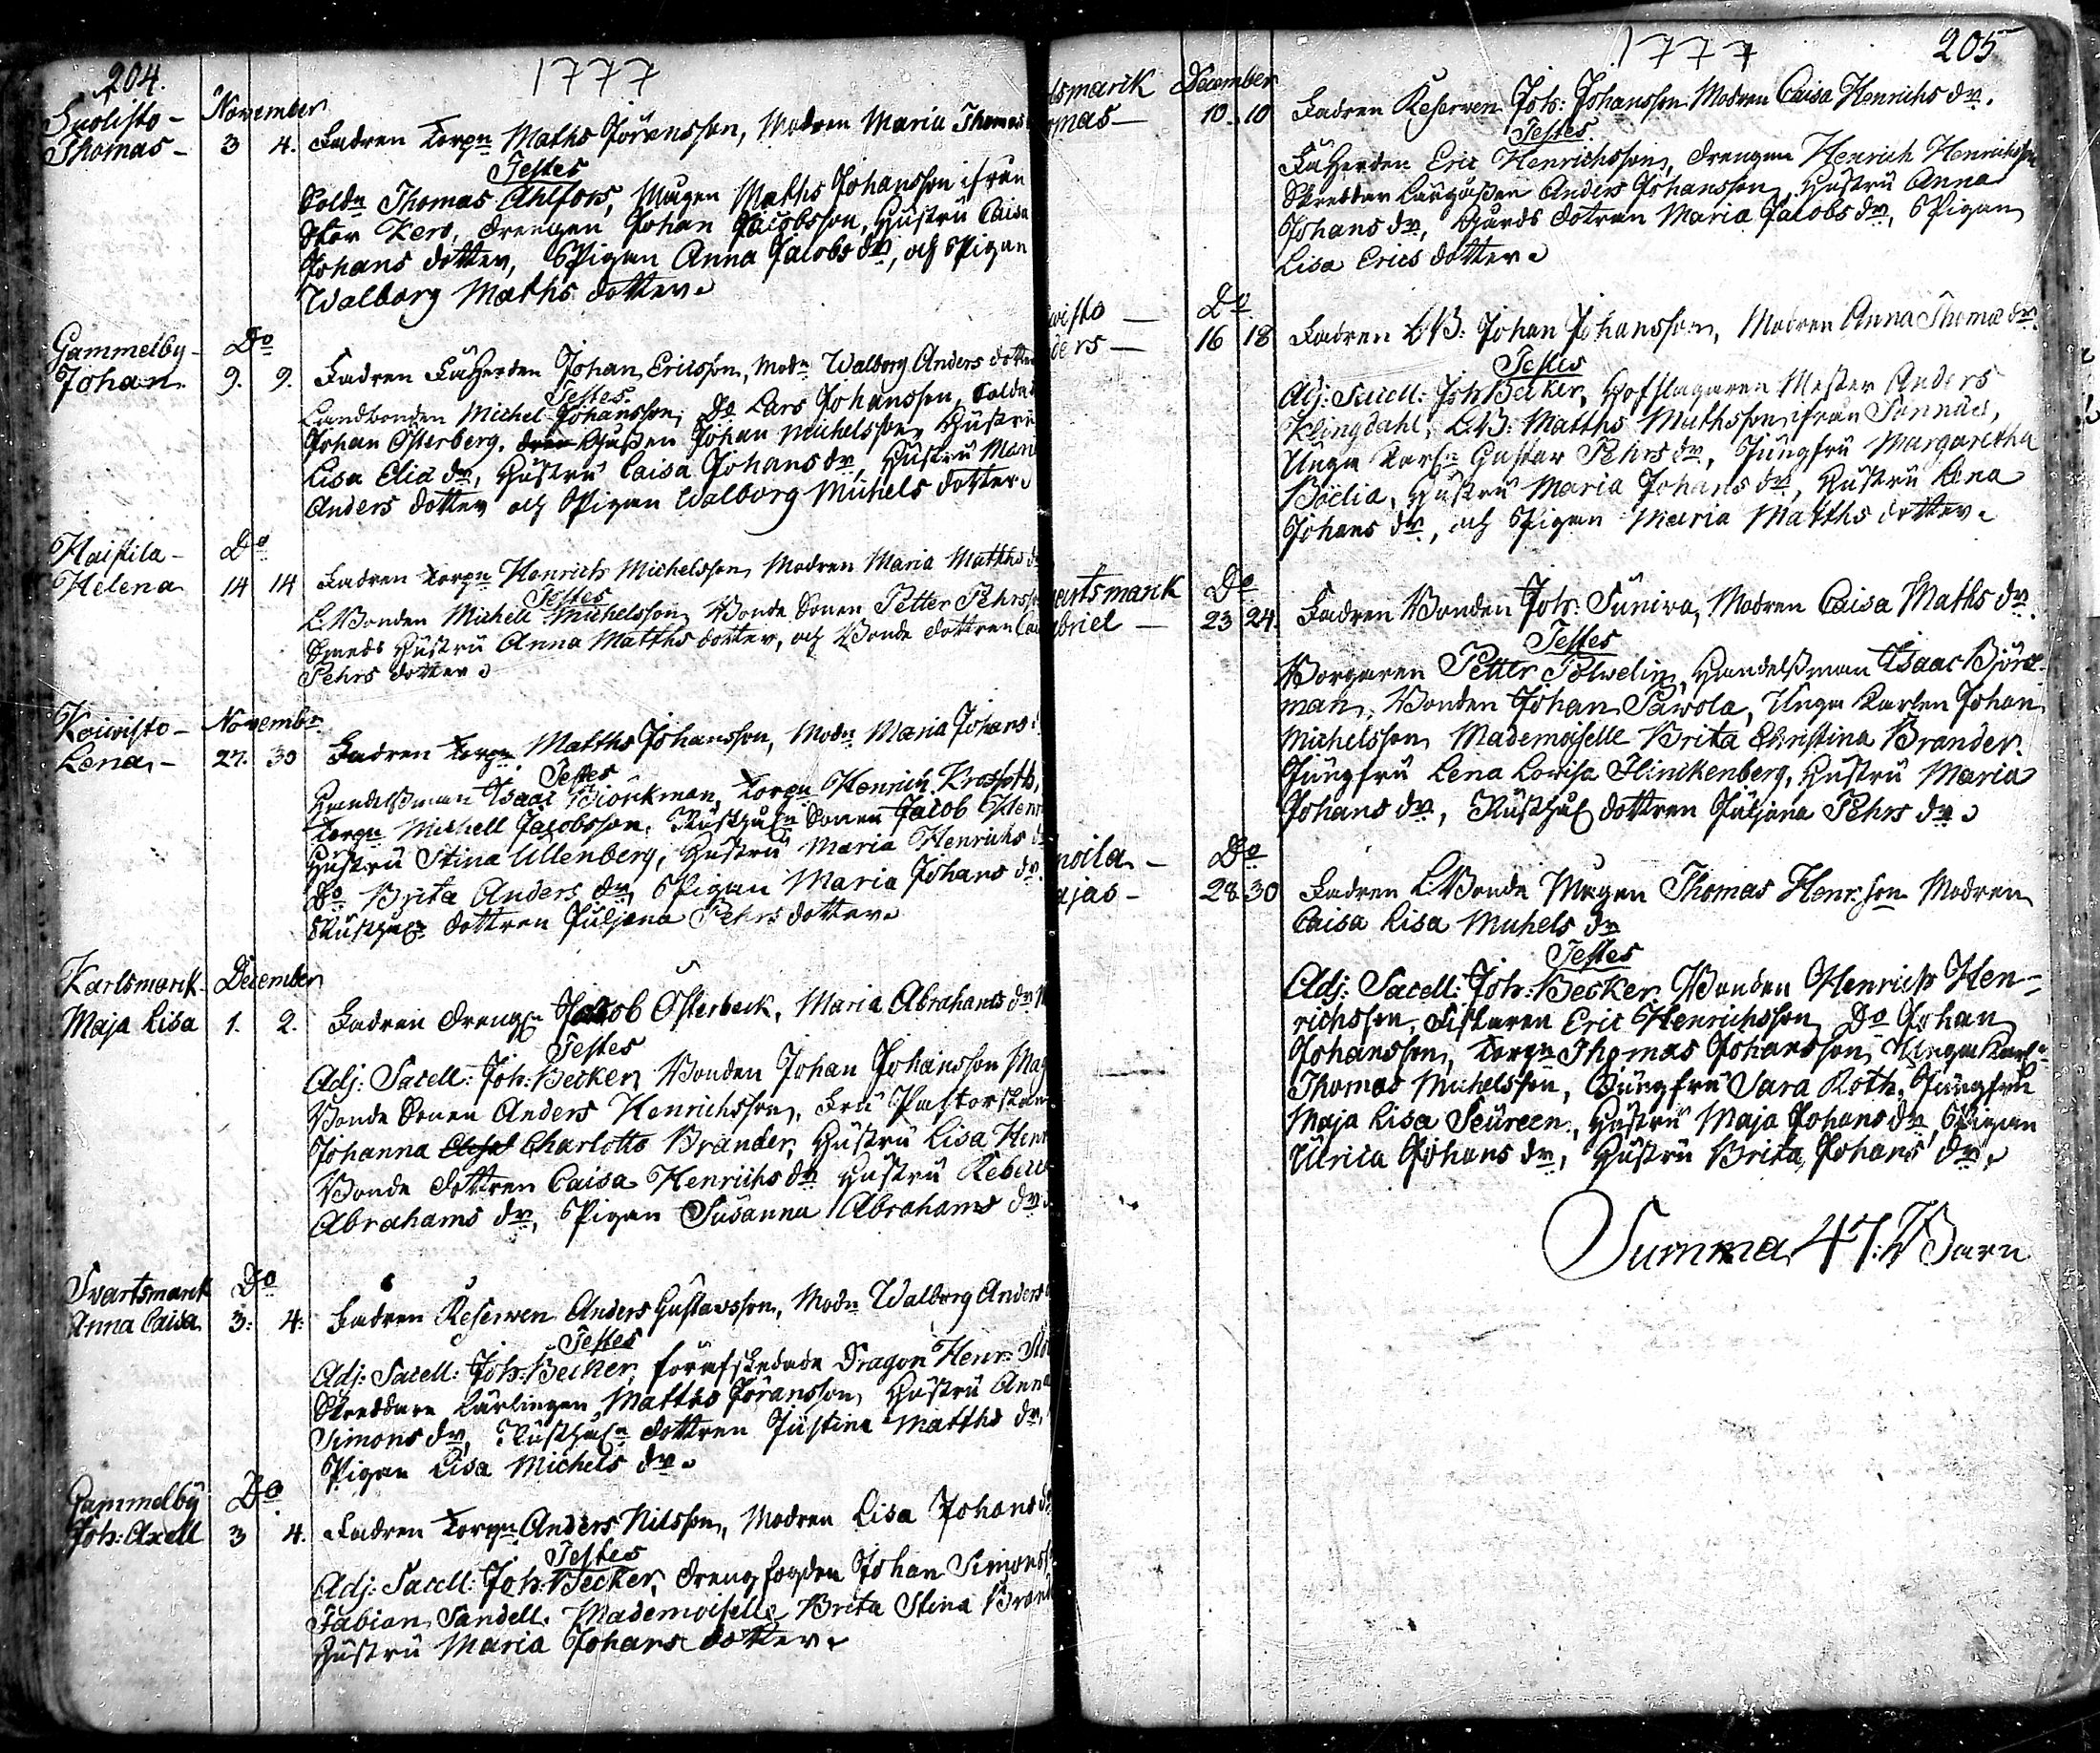 204.
1777
Suolisto - November
Thomas - 3 4. Fadren Torpn Maths Jöransson, Modren Maria Thomas
Testes
Soldn Thomas Ahlfors, Mågen Maths Johansson ifrån
Stor Kers, Drengen Johan Jacobsson, Hustru Caisa
Johans dotter, Pigan Anna Jacobs dr, och Pigan
Walborg Maths dotter.
Gammelby - Do
Johan 9. 9. Fadren FäHerden Johan Ericsson, Modn Walborg Anders dotter
Testes
Landbonden Michel Johansson, Do Lars Johansson, Soldat
Johan Österberg, Johan Michelsson, Hustru
Lisa Eliæ dr, Hustru Caisa Johans dr, Hustru Mari
Anders dotter och Pigan Walborg Michels dotter
Haistila - Do
Helena 14 14 Fadren Torpn Henrich Michelsson, Modren Maria Matths d
Testes
L.Bonden Michell Michelsson, Bonde Sonen Petter Pehrss
Smeds Hustru Anna Matths dotter, och Bonde dottren Cai
Pehrs dotter
Koivisto - Novembr
Lena - 27. 30 Fadren Torpn Matths Johansson, Modn Maria Johans d
Testes
Handelsman Isaac Biörkman, Torpn Henrich
Torpn Michell Jacobsson, Rusthuln Sonen Jacob Hen
Hustru Stina Ullenberg, Hustru Maria Henrichs d
Do Brita Anders dr, Pigan Maria Johans dr.
Rusthuln dottren Juljana Pehrs dotter
Karlsmark - December
Maja Lisa 1. 2. Fadren Drengn Jacob Österbeck, Maria Abrahams dr
Testes
Adj: Sacell: Joh: Becker, Bonden Johan Johansson Mag
Bonde Sonen Anders Henrichsson, Fru Pastorskan
Johanna Charlotta Brander, Hustru Lisa Hen
Bonde dottren Caisa Henrichs dr Hustru Rebec
Abrahams dr, Pigan Susanna Abrahams dr.
Svartsmark Do
Anna Caisa 3: 4: Fadren Reserven Anders Gustavsson, Modn Walborg Anders
Testes
Adj: Sacell: Joh: Becker, förafskedade Dragon Henr:
Skreddare Lärlingen Matths Jöransson, Hustru Anna
Simons dr, Rusthuln dottren Justina Matths dr,
Pigan Lisa Michels dr.
Gammelby Do
Joh: Axell 3 4. Fadren Torpn Anders Nilsson, Modren Lisa Johans d
Testes
Adj: Sacell: Joh: Becker, Drengfogden Johan Simonss
Fabian Sandell. Mademoiselle Brita Stina Brand
Hustru Maria Johans dotter
1777 205
tsmark December
omas - 10. 10 Fadren Reserven Joh: Johansson Modren Caisa Henrichs dr.
Testes
FäHerden Eric Henrichsson, Drengen Henrich Henrichsson
Skreddar Anders Johansson, Hustru Anna
Johans dr, Gårds dotran Maria Jacobs dr, Pigan
Lisa Erics dotter
visto - Do
ders - 16 18 Fadren LB: Johan Johansson, Modren Anna Thomæ dr.
Testes
Adj: Sacell: Joh Becker, Hofslagaren Mester Anders
Klingdahl, LB: Matths Mathsson ifrån Sannäs,
Unga Karln Gustav Pehrs dr, Jungfru Margaretha
Boëlia, Hustru Maria Johans dr, Hustru Lena
Johans dr, och Pigan Maria Matths dotter
vartsmark Do
abriel - 23 24. Fadren Bonden Joh: Suniva, Modren Caisa Maths dr.
Testes
Borgaren Petter Polvelin, Handelsman Isaac Björk-
man, Bonden Johan Pavola, Unga Karlen Johan
Michelsson Mademoiselle Brita Christina Brander.
Jungfru Lena Lovisa Flinckenberg, Hustru Maria
Johans dr, Rusthul dottren Juljana Pehrs dr
noila - Do
ajas - 28 30 Fadren L.Bonde Mågen Thomas Henr:son Modren
Caisa Lisa Michels dr
Testes
Adj: Sacell: Joh: Becker Bonden Henrich Hen-
richsson, Fiskaren Eric Henrichsson, Do Johan
Johansson, Torpn Thomas Johansson, Unga Karln
Thomas Michelsson, Jungfru Sara Roth, Jungfru
Maja Lisa Seureen, Hustru Maja Johans dr, Pigan
Ulrica Johans dr, Hustru Brita Johans dr.
Summa 47. Barn